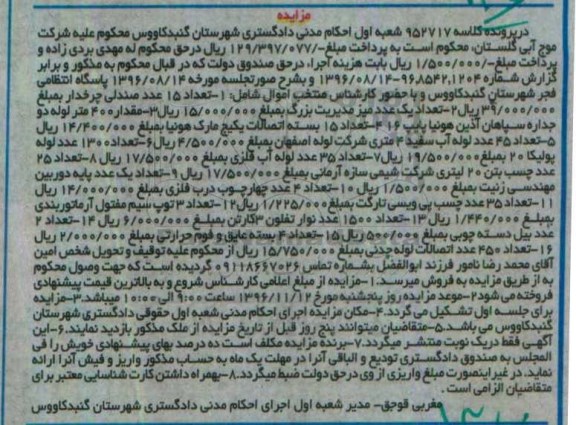 مزایده
درپرونده کلاسه ۹۵۲۷۱۷ شعبه اول احکام مدنی دادگستری شهرستان گنبدکاووس محکوم علیه شرکت
موج آبی گلستان، محکوم است به پرداخت مبلغ/۱۲۹/۳۹۷/۰۷۷ ریال درحق محکوم له مهدی بردی زاده و
پرداخت مبلغ/۱/۵۰۰/۰۰۰ ریال بابت هزینه اجرا، درحق صندوق دولت که در قبال محکوم به مذکور و برابر
گزارش شماره ۹۶۸۵۴۲,۱۲۰۴-۱۳۹۶/۰۸/۱۴ و بشرح صورتجلسه مورخه ۱۳۹۶/۰۸/۱۴ پاسگاه انتظامی
فجر شهرستان گنبدکاووس و با حضور کارشناس منتخب اموال شامل: ۱-تعداد ۱۵ عدد صندلی چرخدار بمبلغ
۳۹/۰۰۰/۰۰۰ریال۲-تعداد یک عدد میز مدیریت بزرگ بمبلغ ۱۵/۰۰۰/۰۰۰ ریال۳-مقدار۴۰۰ متر لوله دو
جداره سپاهان آذین هونیا پایپ ۱۶ ۴-تعداد ۱۵ بسته اتصالات پکیج مارک هونیا بمبلغ ۱۴/۴۰۰/۰۰۰ ریال
۵-تعداد ۴۵ عدد لوله آب سفید ۴ متری شرکت لوله اصفهان بمبلغ ۴/۵۰۰/۰۰۰ ریال۶-تعداد۱۳۰۰ عدد لوله
پولیکا ۲۰ بمبلغ ۱۹/۵۰۰/۰۰۰ ریال۷-تعداد ۳۵ عدد لوله آب فلزی بمبلغ ۱۷/۵۰۰/۰۰۰ ریال ۸-تعداد ۲۵
عدد چسب بتن ۲۰ لیتری شرکت شیمی سازه آرمانی بمبلغ ۱۷/۵۰۰/۰۰۰ ریال ۹-تعداد یک عدد پایه دوربین
مهندسی زنیت بمبلغ ۱/۵۰۰/۰۰۰ ریال ۱۰-تعداد ۴ عدد چهارچوب درب فلزی بمبلغ ۱۴/۰۰۰/۰۰۰ ریال
۱۱-تعداد ۳۵ عدد چسب پی ویسی تارگت بمبلغ ۱/۲۲۵/۰۰۰ ریال۱۲-تعداد ۳ توپ سیم مفتول آرماتوربندی
بمبلغ ۱/۴۴۰/۰۰۰ ریال ۱۳-تعداد ۱۵۰۰ عدد نوار تفلون ۳کارتن بمبلغ ۶/۰۰۰/۰۰۰ ریال ۱۴-تعداد ۲
عدد بیل دسته چوبی بمبلغ ۵۰۰/۰۰۰ ریال ۱۵-تعداد ۴ بسته عایق و فوم حرارتی بمبلغ ۲/۰۰۰/۰۰۰ ریال
۱۶-تعداد ۴۵۰ عدد اتصالات لوله چدنی بمبلغ ۱۵/۷۵۰/۰۰۰ ریال از محکوم علیه توقیف و تحویل شخص امین
آقای محمد رضا نامور فرزند ابوالفضل بشماره تماس ۰۹۱۱۸۶۶۷۰۲۶ گردیده است که جهت وصول محکوم
به از طریق مزایده به فروش میرسد.۱-مزایده از مبلغ اعلامی کارشناس شروع و به بالاترین قیمت پیشنهادی
فروخته می شود۲-موعد مزایده روز پنجشنبه مورخ ۱۳۹۶/۱۱/۱۲ ساعت ۹:۰۰ الی ۱۰:۰۰ میباشد.۳-مزایده
برای جلسه اول تشکیل می گردد.۴-مکان مزایده اجرای احکام مدنی شعبه اول حقوقی دادگستری شهرستان
گنبدکاووس می باشد.۵-متقاضیان میتوانند پنج روز قبل از تاریخ مزایده از ملک مذکور بازدید نمایند.۶-این
آگهی فقط دریک نوبت منتشر میگردد.۷-برنده مزایده مکلف است ده درصد بهای پیشنهادی خویش را فی
المجلس به صندوق دادگستری تودیع و الباقی آنرا در مهلت یک ماه به حساب مذکور واریز و فیش آنرا ارائه
نماید. در غیراینصورت مبلغ واریزی از وی درحق دولت ضبط میگردد.۸-بهمراه داشتن کارت شناسایی معتبر برای
متقاضیان الزامی است .
مغربی قوجق- مدیر شعبه اول اجرای احکام مدنی دادگستری شهرستان گنبدکاووس